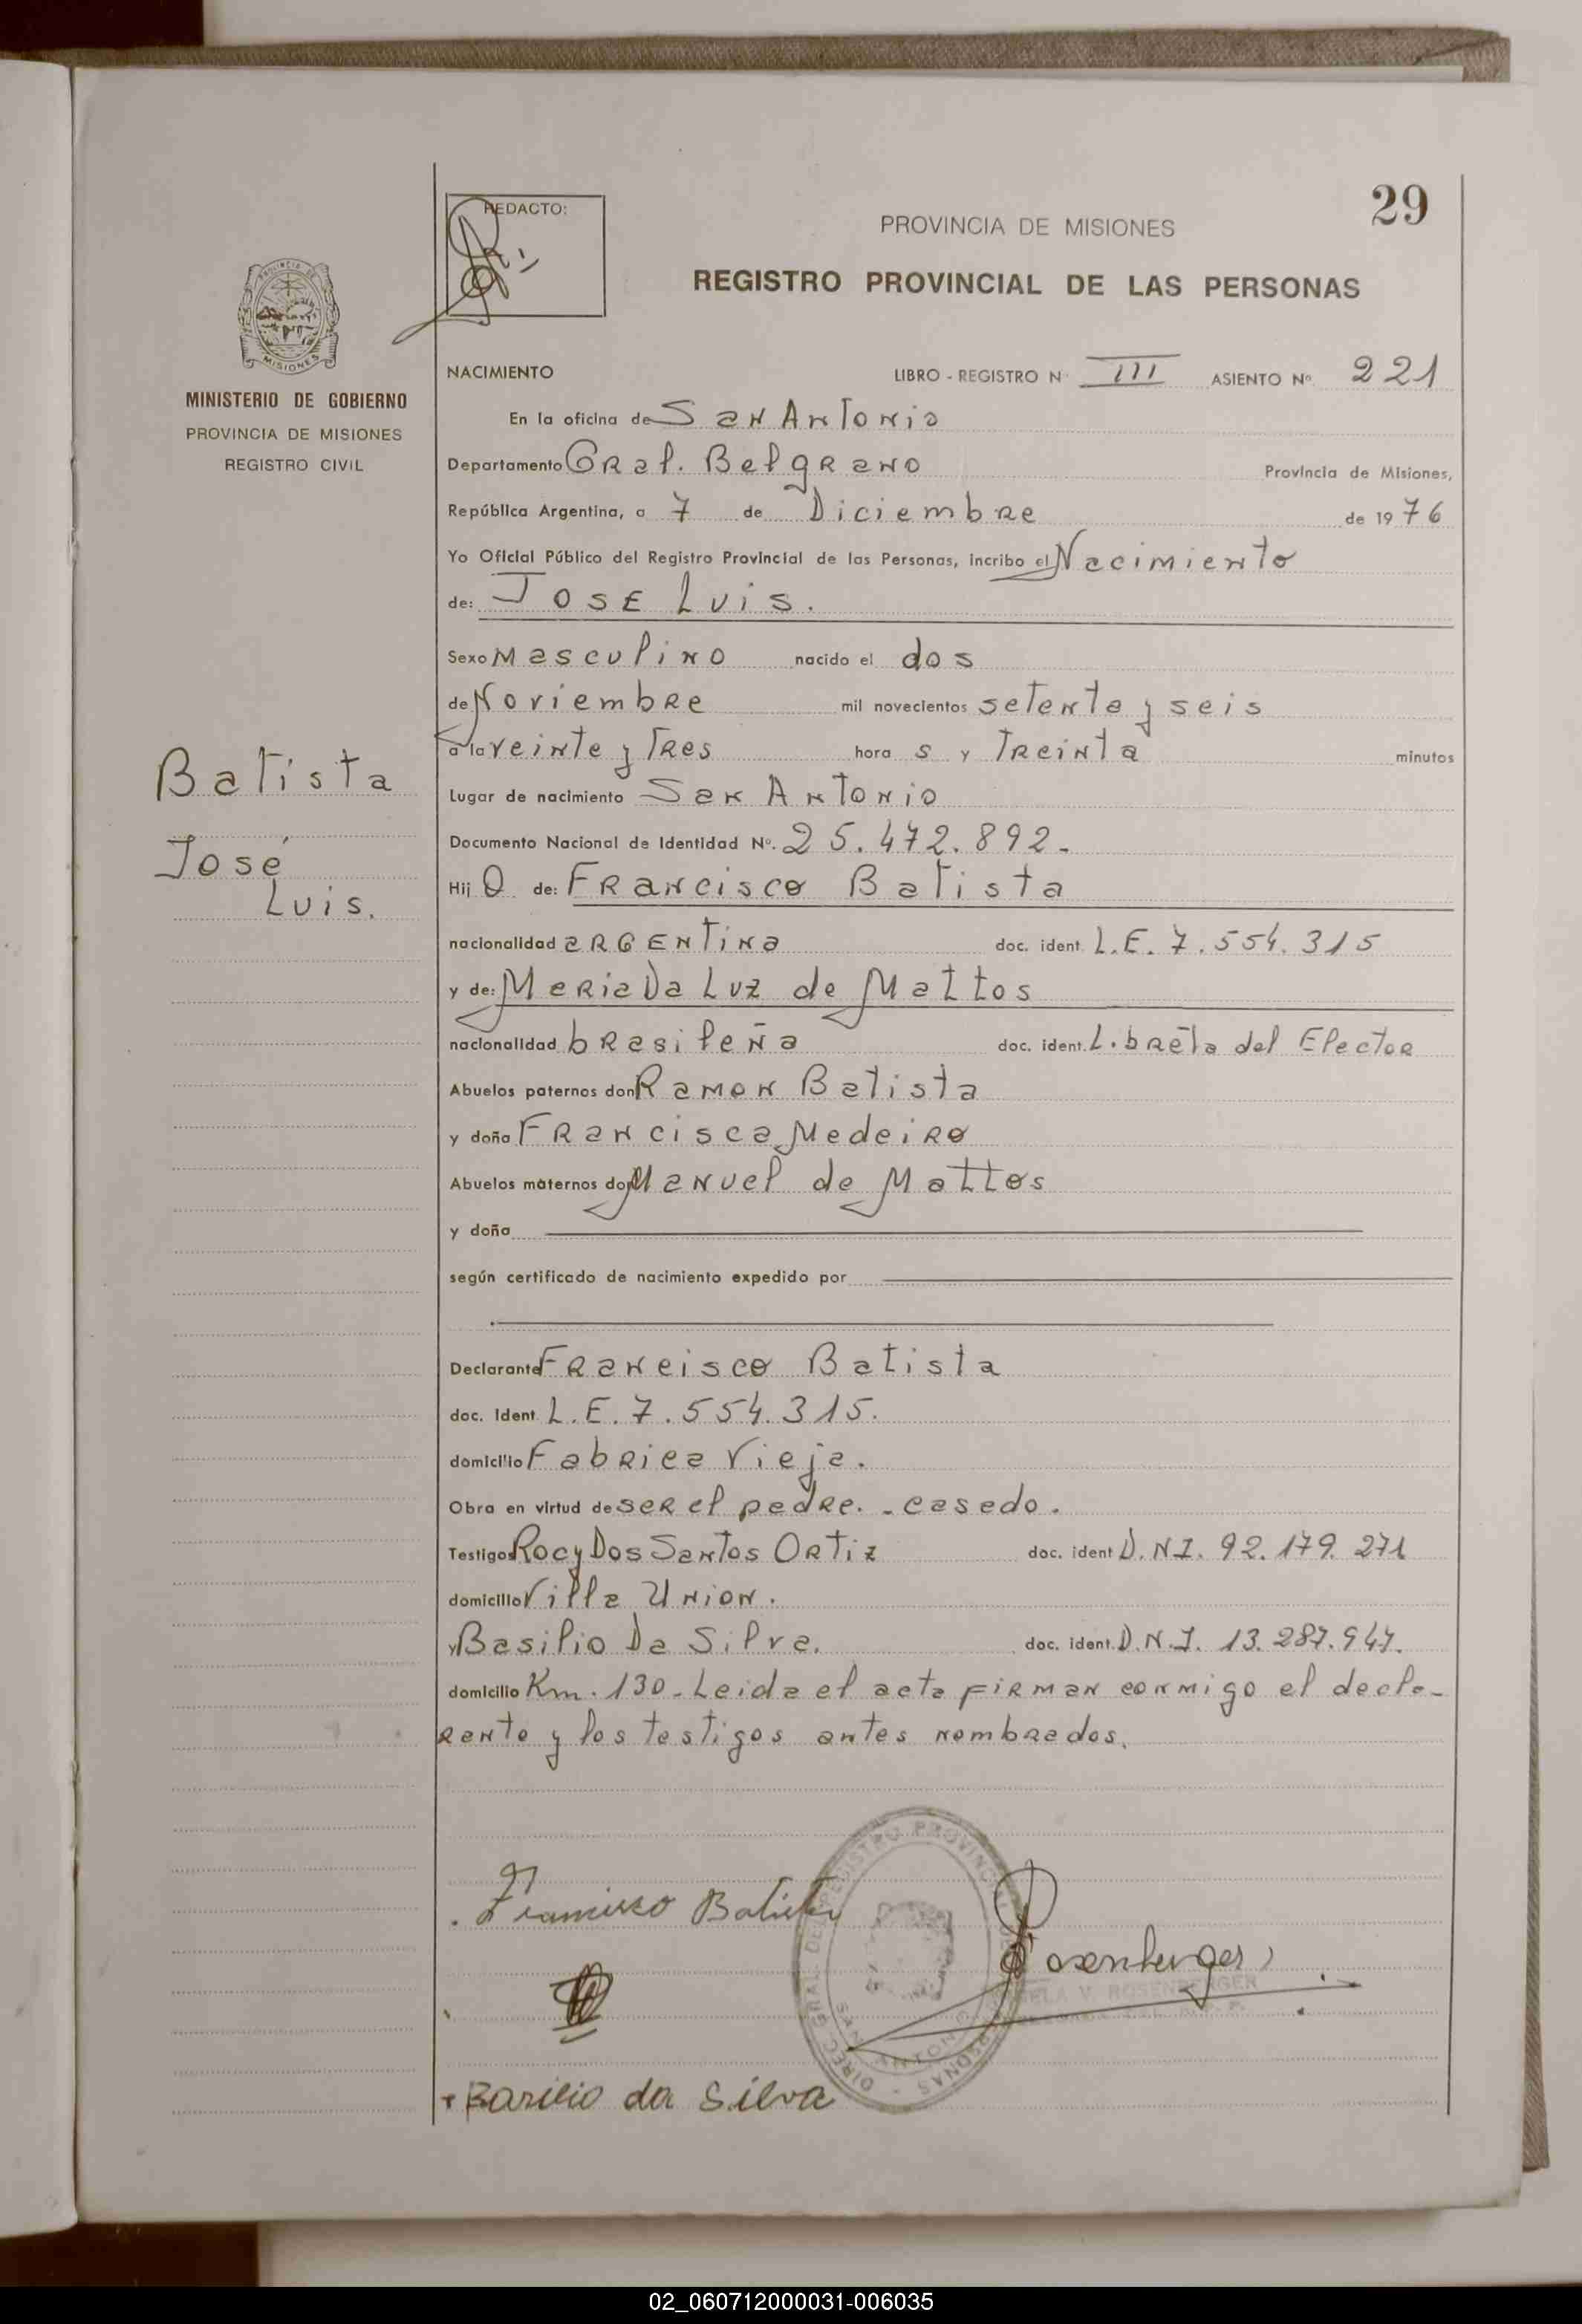 29
REDACTO:
PROVINCIA DE MISIONES
REGISTRO PROVINCIAL DE LAS PERSONAS
PROVINCIA DE
MISIONES
MINISTERIO DE GOBIERNO
PROVINCIA DE MISIONES
REGISTRO CIVIL
Batista
José
Luis.
NACIMIENTO LIBRO - REGISTRO Nº III ASIENTO Nº 221
En la oficina de San Antonio
Departamento Gral. Belgrano Provincia de Misiones,
República Argentina, a 7 de Diciembre de 1976
Yo Oficial Público del Registro Provincial de las Personas, incribo el Nacimiento
de: JOSE LUIS.
Sexo Masculino nacido el dos
de Noviembre mil novecientos setenta y seis
a la veinte y Tres hora s y Treinta minutos
Lugar de nacimiento San Antonio
Documento Nacional de Identidad Nº. 25.472.892.-
Hij O de: Francisco Batista
nacionalidad argentina doc. ident. L.E. 7.554.315
y de: Maria Da Luz de Mattos
nacionalidad brasileña doc. ident. Libreta del Elector
Abuelos paternos don Ramon Batista
y doña Francisca Medeiro
Abuelos maternos don Manuel de Mattos
y doña
según certificado de nacimiento expedido por
Declarante Francisco Batista
doc. Ident. L.E. 7.554.315.
domicilio Fabrica Vieja.
Obra en virtud de ser el padre. - casado.
Testigos Rocy Dos Santos Ortiz doc. ident D.N.I. 92.179.271
domicilio Villa Union.
y Basilio Da Silva. doc. ident. D.N.I. 13.287.947.
domicilio Km. 130 - Leida el acta firman conmigo el decla-
rante y los testigos antes nombrados.
Francisco Batista
Rosenberger
DIREC. GRAL. DEL REGISTRO PROVINCIAL DE LAS PERSONAS
SAN ANTONIO
V. ROSENBERGER
Basilio da Silva
02_060712000031-006035